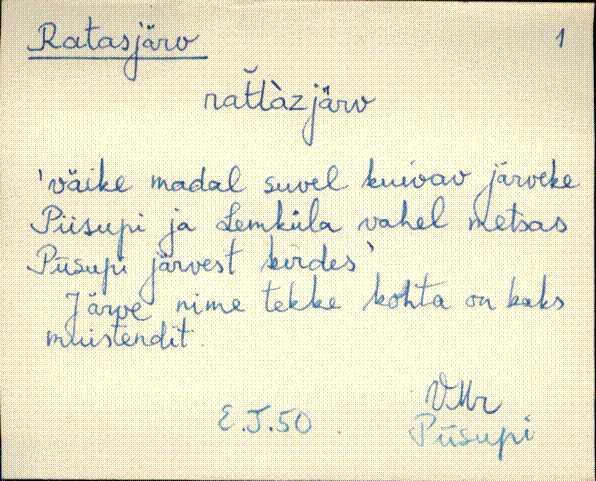 Ratasjärv 1
rat̆t̀àzjärv
'väike madal suvel kuivav järveke
Piisupi ja Lemküla vahel metsas
Piisupi järvest kirdes'
Järve nime tekke kohta on kaks
muistendit.
VMr
E.J.50. Piisupi